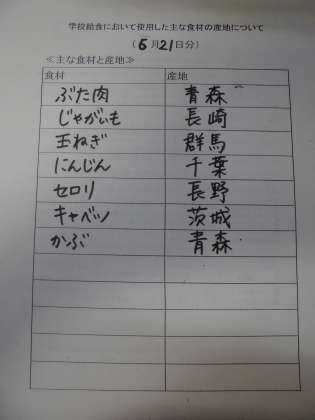 学校給食において使用した主な食材の産地について
(6月21日分)
≪主な食材と産地≫
食材 産地
ぶた肉 青森
じゃがいも 長崎
玉ねぎ 群馬
にんじん 千葉
セロリ 長野
キャベツ 茨城
かぶ 青森